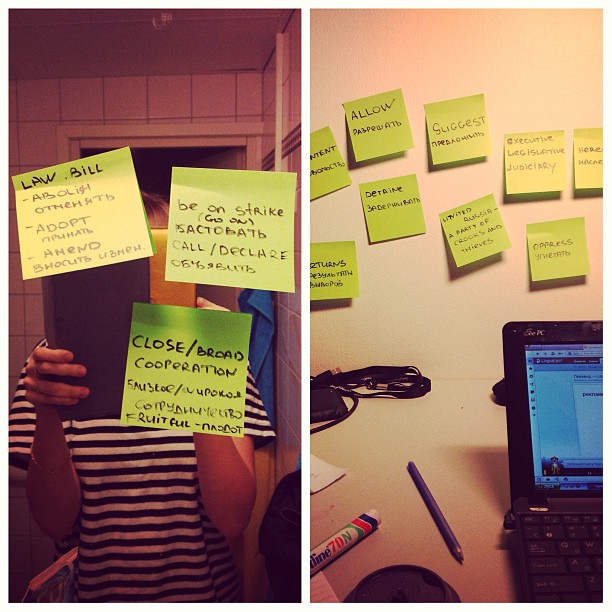 LAW, BILL
- ABOLISH
ОТМЕНЯТЬ
- ADOPT
ПРИНЯТЬ
- AMEND
ВНОСИТЬ ИЗМЕН.
be on strike
(GO ON)
БАСТОВАТЬ
CALL/DECLARE
ОБЪЯВИТЬ
CLOSE/BROAD
COOPERATION
БЛИЗКОЕ/ШИРОКОЕ
СОТРУДНИЧЕСТВО
FRUITFUL - ПЛОДОТ
ALLOW
РАЗРЕШАТЬ
SUGGEST
ПРЕДЛОЖИТЬ
EXECUTIVE
LEGISLATIVE
JUDICIARY
HERE
DETAINE
ЗАДЕРЖИВАТЬ
UNITED RUSSIA -
A PARTY OF
CROOKS AND
THIEVES
OPPRESS
УГНЕТАТЬ
TURNS
РЕЗУЛЬТАТЫ
ВЫБОРОВ
Eee PC
line 70N